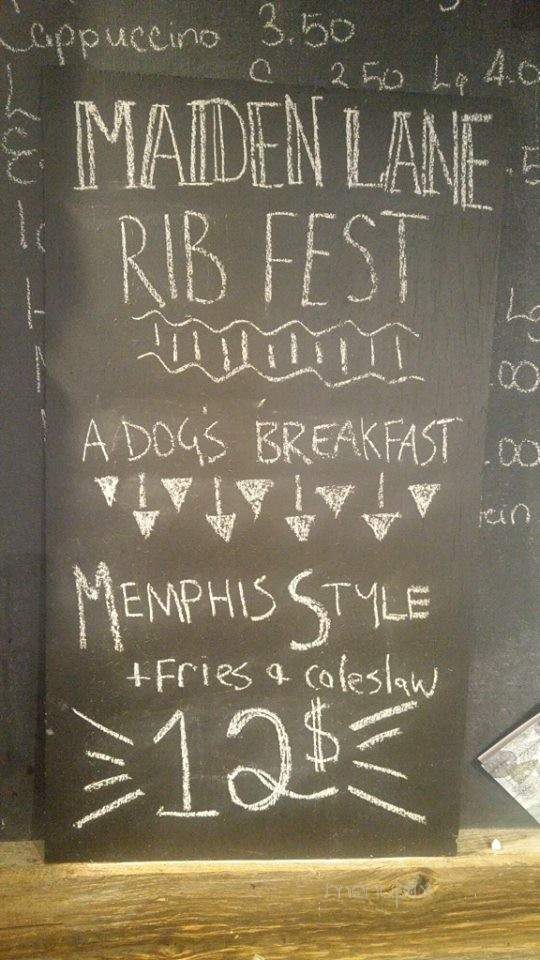 Cappuccino 3.50
2 50 Lg 4.0
MAIDEN LANE
RIB FEST
A DOG'S BREAKFAST
MEMPHIS STYLE
+Fries & coleslaw
12$
Lg
.00
.00
menupix